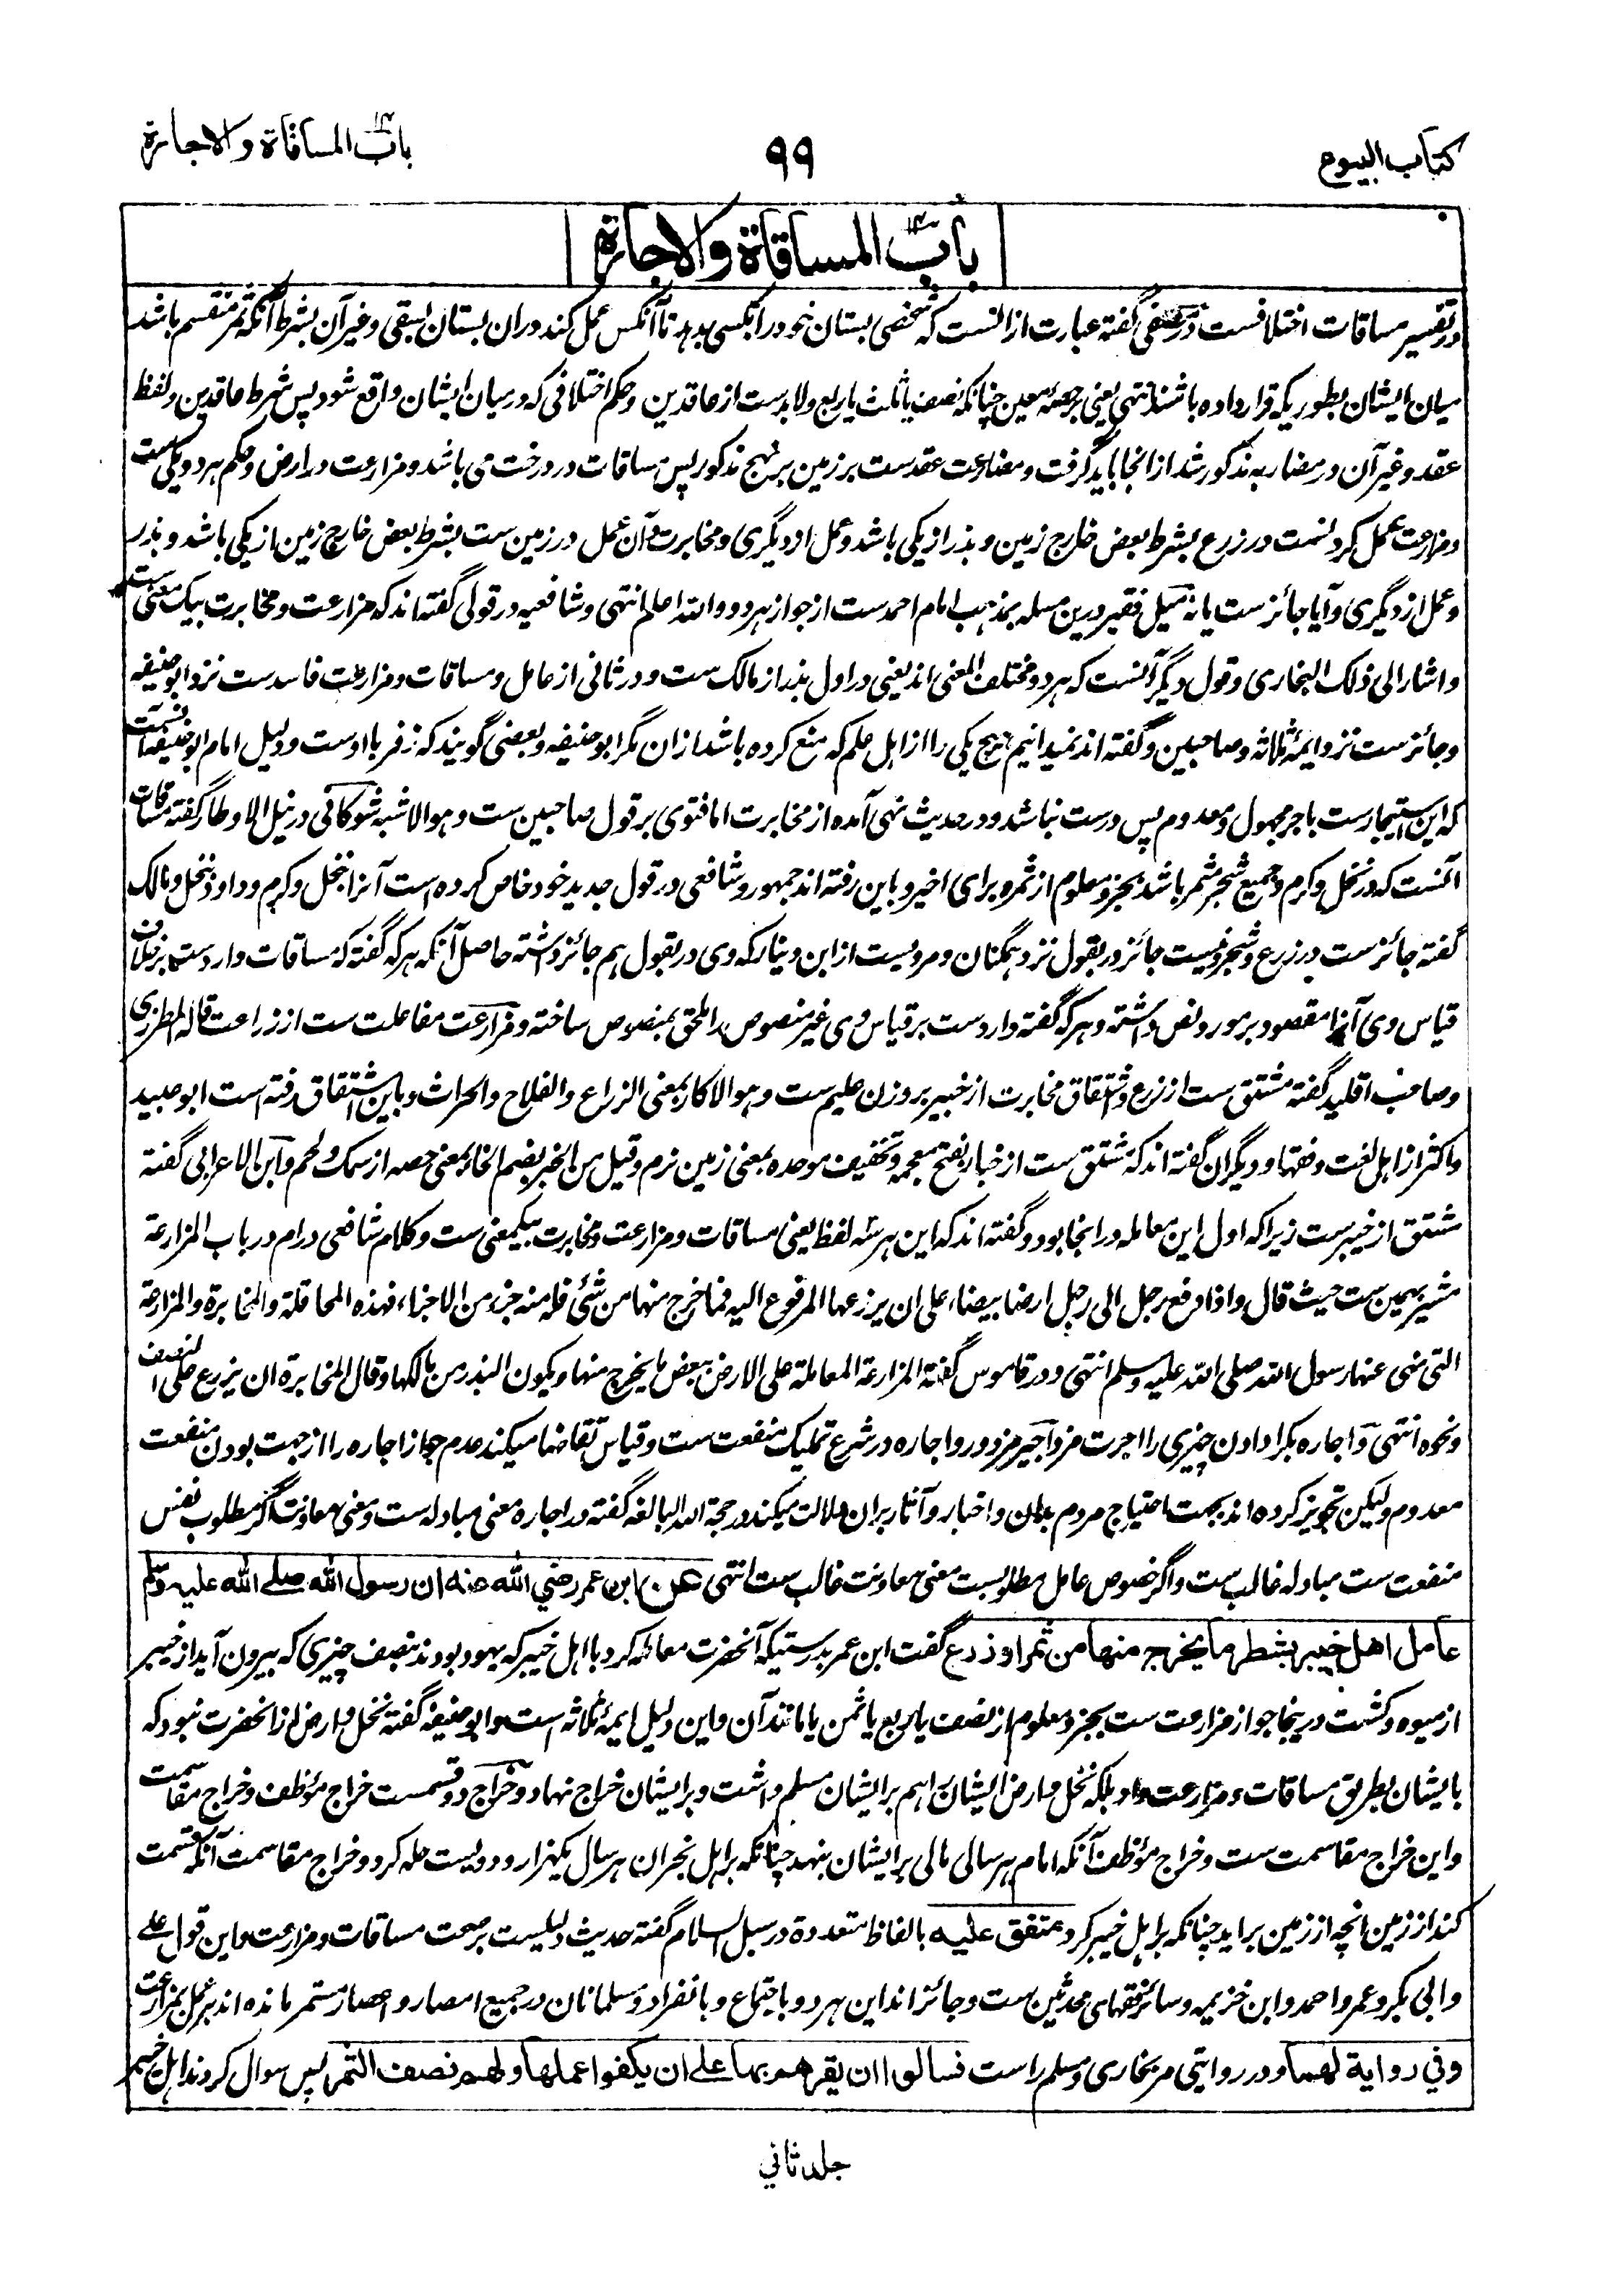 كتاب البيوع
٩٩
باب المساقاة والاجارة
باب المساقاة والاجارة
ودر تفسير مساقات اختلافست در مصفى گفته عبارت ازانست كه شخصى بستان خود را بكسى بدهد تا آنكس عمل كند دران بستان بسقى و غير آن بشرط آنكه ثمر منقسم باشد
ميان ايشان بطوريكه قرار داده باشند انتهى يعنى بر حصه معين چنانكه نصف يا ثلث يا ربع ولابدست از عاقدين وحكم اختلافى كه درميان ايشان واقع شود پس شرط عاقدين ولفظ
عقد وغير آن در مضاربه مذكور شد از انجا بايد گرفت ومضارعت عقدست بر زمين بر نهج مذكور پس مساقات در درخت مى باشد ومزارعت در ارض وحكم هر دو يكى ست
ومزارعت عمل كردنست در زرع بشرط بعض خارج زمين وبذر از يكى باشد وعمل از ديگرى ومخابرت وآن عمل در زمين ست بشرط بعض خارج زمين از يكى باشد وبذر
وعمل از ديگرى وآيا جائزست يا نه ميل فقير درين مسله بمذهب امام احمدست از جواز هر دو والله اعلم انتهى وشافعيه در قولى گفته اند كه مزارعت ومخابرت بيك معنى ست
واشار الى ذلك البخارى وقول ديگر آنست كه هر دو مختلف المعنى اند يعنى در اول بذر از مالك ست ودر ثانى از عامل ومساقات ومزارعت فاسدست نزد ابو حنيفه
وجائزست نزد ايمهٔ ثلاثه وصاحبين وگفته اند نميدانيم هيچ يكى را از اهل علم كه منع كرده باشد ازان مگر ابو حنيفه وبعضى گويند كه زفر با اوست ودليل امام ابو حنيفه آنست
كه اين استيجارست باجر مجهول ومعدوم پس درست نباشد ودر حديث نهى آمده از مخابرت اما فتوى بر قول صاحبين ست وهو الاشبه شوكانى در نيل الاوطار گفته مساقات
آنست كه در نخل وكرم وجميع شجر مثمر باشد بجزو معلوم از ثمره براى اخير وباين رفته اند جمهور وشافعى در قول جديد خود خاص كرده است آنرا بنخل وكرم وداود بنخل ومالك
گفته جائزست در زرع وشجر ونيست جائز در بقول نزد همگنان ومرويست از ابن دينار كه وى در بقول هم جائز داشته حاصل آنكه هر كه گفته كه مساقات واردست بر خلاف
قياس وى آنرا مقصود بر مورد نص داشته وهر كه گفته واردست بر قياس وى غير منصوص را ملحق بمنصوص ساخته ومزارعت مفاعلت ست از زراعت قاله المطرزى
وصاحب اقليد گفته مشتق ست از زرع واشتقاق مخابرت از خبير بر وزن عليم ست وهو الاكار بمعنى الزراع والفلاح والحراث وباين اشتقاق رفته است ابو عبيد
واكثر از اهل لغت وفقها وديگران گفته اند كه مشتق ست از خبار بفتح معجمه وتخفيف موحده بمعنى زمين نرم وقيل من الخبر بضم الخاء بمعنى حصه از سمك ولحم وابن الاعرابى گفته
مشتق از خيبرست زيرا كه اول اين معامله در انجا بود وگفته اند كه اين هر سه لفظ يعنى مساقات ومزارعت ومخابرت بيكمعنى ست وكلام شافعى در ام در باب المزارعة
مشير بهمين ست حيث قال واذا دفع رجل الى رجل ارضا بيضاء على ان يزرعها المرفوع اليه فما خرج منها من شئ فله منه جزء من الاجزاء فهذه المحاقلة والمخابرة والمزارعة
التى نهى عنها رسول الله صلى الله عليه وسلم انتهى ودر قاموس گفته المزارعة المعاملة على الارض ببعض ما يخرج منها ويكون البذر من مالكها وقال المخابرة ان يزرع على النصف
ونحوه انتهى واجاره بكرا دادن چيزى را اجرت مزد واجير مزدور واجاره در شرع تمليك منفعت ست وقياس تقاضا ميكند عدم جواز اجاره را از جهت بودن منفعت
معدوم وليكن تجويز كرده اند بجهت احتياج مردم بدان واخبار وآثار بران دلالت ميكند در حجة الله البالغه گفته در اجاره معنى مبادله است ومعنى معاونت اگر مطلوب نفس
منفعت ست مبادله غالب ست واگر خصوص عامل مطلوبست معنى معاونت غالب ست انتهى عن ابن عمر رضي الله عنه ان رسول الله صلے الله عليه وسلم
عامل اهل خيبر بشطر ما يخرج منها من ثمر او زرع گفت ابن عمر بدرستيكه آنحضرت معامله كرد با اهل خيبر كه يهود بودند بنصف چيزى كه بيرون آيد از خيبر
از ميوه وكشت درينجا جواز مزارعت ست بجزو معلوم از نصف يا ربع يا ثمن يا مانند آن واين دليل ايمهٔ ثلاثه است وابو حنيفه گفته نخل وارض از انحضرت نبود كه
بايشان بطريق مساقات ومزارعت داد بلكه نخل وارض ايشان را هم بر ايشان مسلم داشت وبر ايشان خراج نهاد وخراج دو قسمست خراج مؤظف وخراج مقاسمت
واين خراج مقاسمت ست وخراج مؤظف آنكه امام هر سالى مالى بر ايشان بنهد چنانكه بر اهل نجران هر سال يكهزار ودوليست حله كرد وخراج مقاسمت آنكه قسمت
كند از زمين انچه از زمين برايد چنانكه بر اهل خيبر كرد متفق عليه بالفاظ متعددة در سبل السلام گفته حديث دليلست بر صحت مساقات ومزارعت واين قول على
وابى بكر وعمر واحمد وابن خزيمه وسائر فقهاى محدثين ست وجائزاند اين هر دو باجتماع وبانفراد ومسلمانان در جميع امصار واعصار مستمر مانده اند بر عمل بمزارعت
وفي رواية لهما ودر روايتى مر بخارى ومسلم راست فسألوا ان يقرهم بها علے ان يكفوا عملها ولهم نصف الثمر پس سوال كردند اهل خيبر
جلد ثاني